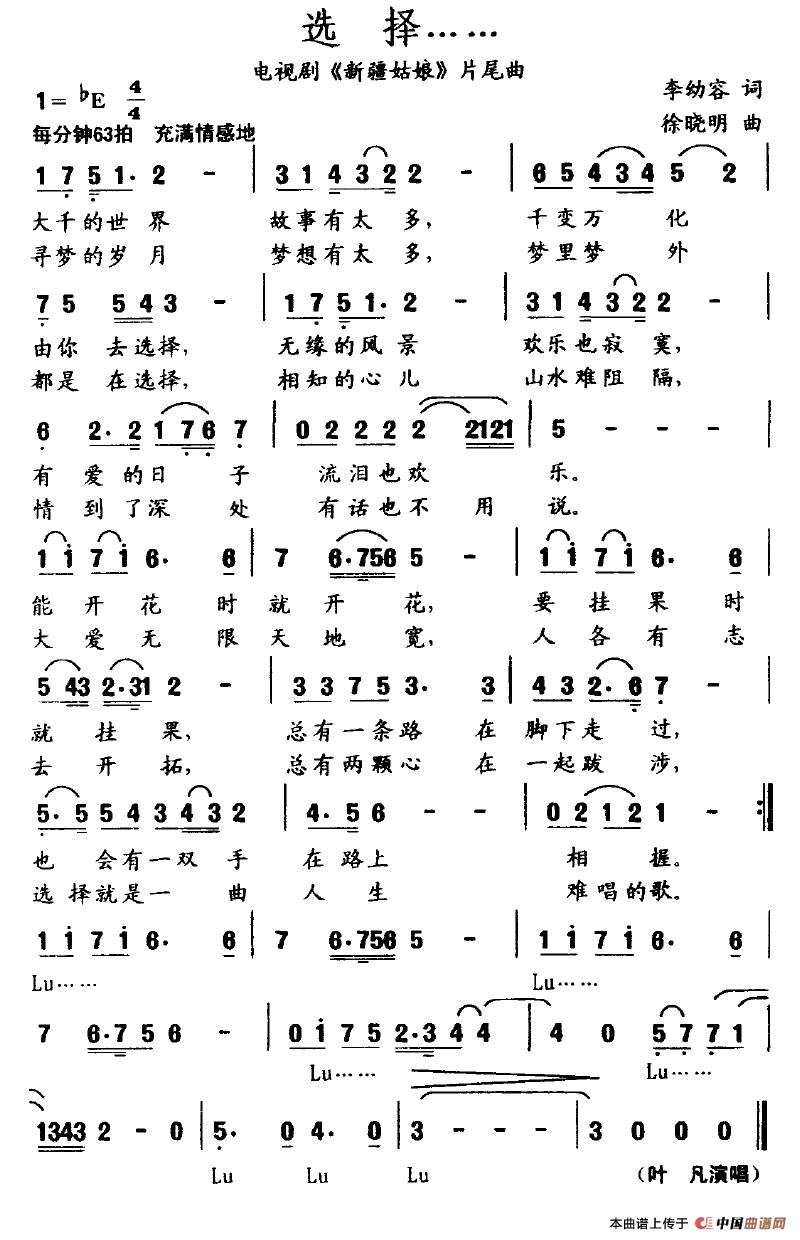 选 择……
电视剧《新疆姑娘》片尾曲
1=♭E 4/4
李幼容 词
每分钟63拍 充满情感地
徐晓明 曲
1 7 5 1· 2 - | 3 1 4 3 2 2 2 - | 6 5 4 3 3 4 5 2 |
大千的世界 故事有太多, 千变万化
寻梦的岁月 梦想有太多, 梦里梦外
7 5 5 4 3 - | 1 7 5 1· 2 - | 3 1 4 3 2 2 2 - |
由你 去选择, 无缘的风景 欢乐也寂寞,
都是 在选择, 相知的心儿 山水难阻隔,
6 2· 2 1 7 6 7 | 0 2 2 2 2 2 2121 | 5 - - - |
有 爱 的日 子 流泪也欢 乐。
情 到 了深 处 有话也不 用 说。
1 i 7 i 6· 6 | 7 6·756 5 - | 1 i 7 i 6· 6 |
能 开 花 时 就 开 花, 要 挂 果 时
大 爱 无 限 天 地 宽, 人 各 有 志
5 43 2·31 2 - | 3 3 7 5 3· 3 | 4 3 2· 6 7 - |
就 挂 果, 总有一条路 在 脚下走 过,
去 开 拓, 总有两颗心 在 一起跋 涉,
5· 5 5 4 3 4 3 2 | 4· 5 6 - - | 0 2 1 2 1 - :|
也 会有一双 手 在 路上 相 握。
选 择就是一 曲 人 生 难唱的歌。
1 i 7 i 6· 6 | 7 6·756 5 - | 1 i 7 i 6· 6 |
Lu…… Lu……
7 6·7 5 6 - | 0 i 7 5 2·3 4 4 | 4 0 5 7 7 1 |
Lu…… Lu……
1343 2 - 0 | 5· 0 4· 0 | 3 - - - | 3 0 0 0 ‖
Lu Lu Lu (叶 凡演唱)
本曲谱上传于 中国曲谱网